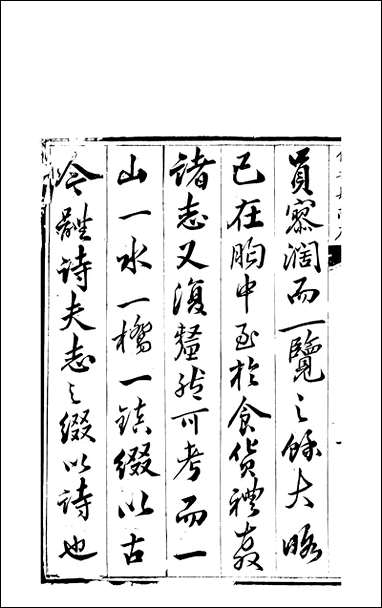 員察濶而一覽之餘大略
已在胸中至於食貨禮文
諸志又復釐然可考而一
山一水一橋一鎮綴以古
今雜詩夫志之綴以詩也